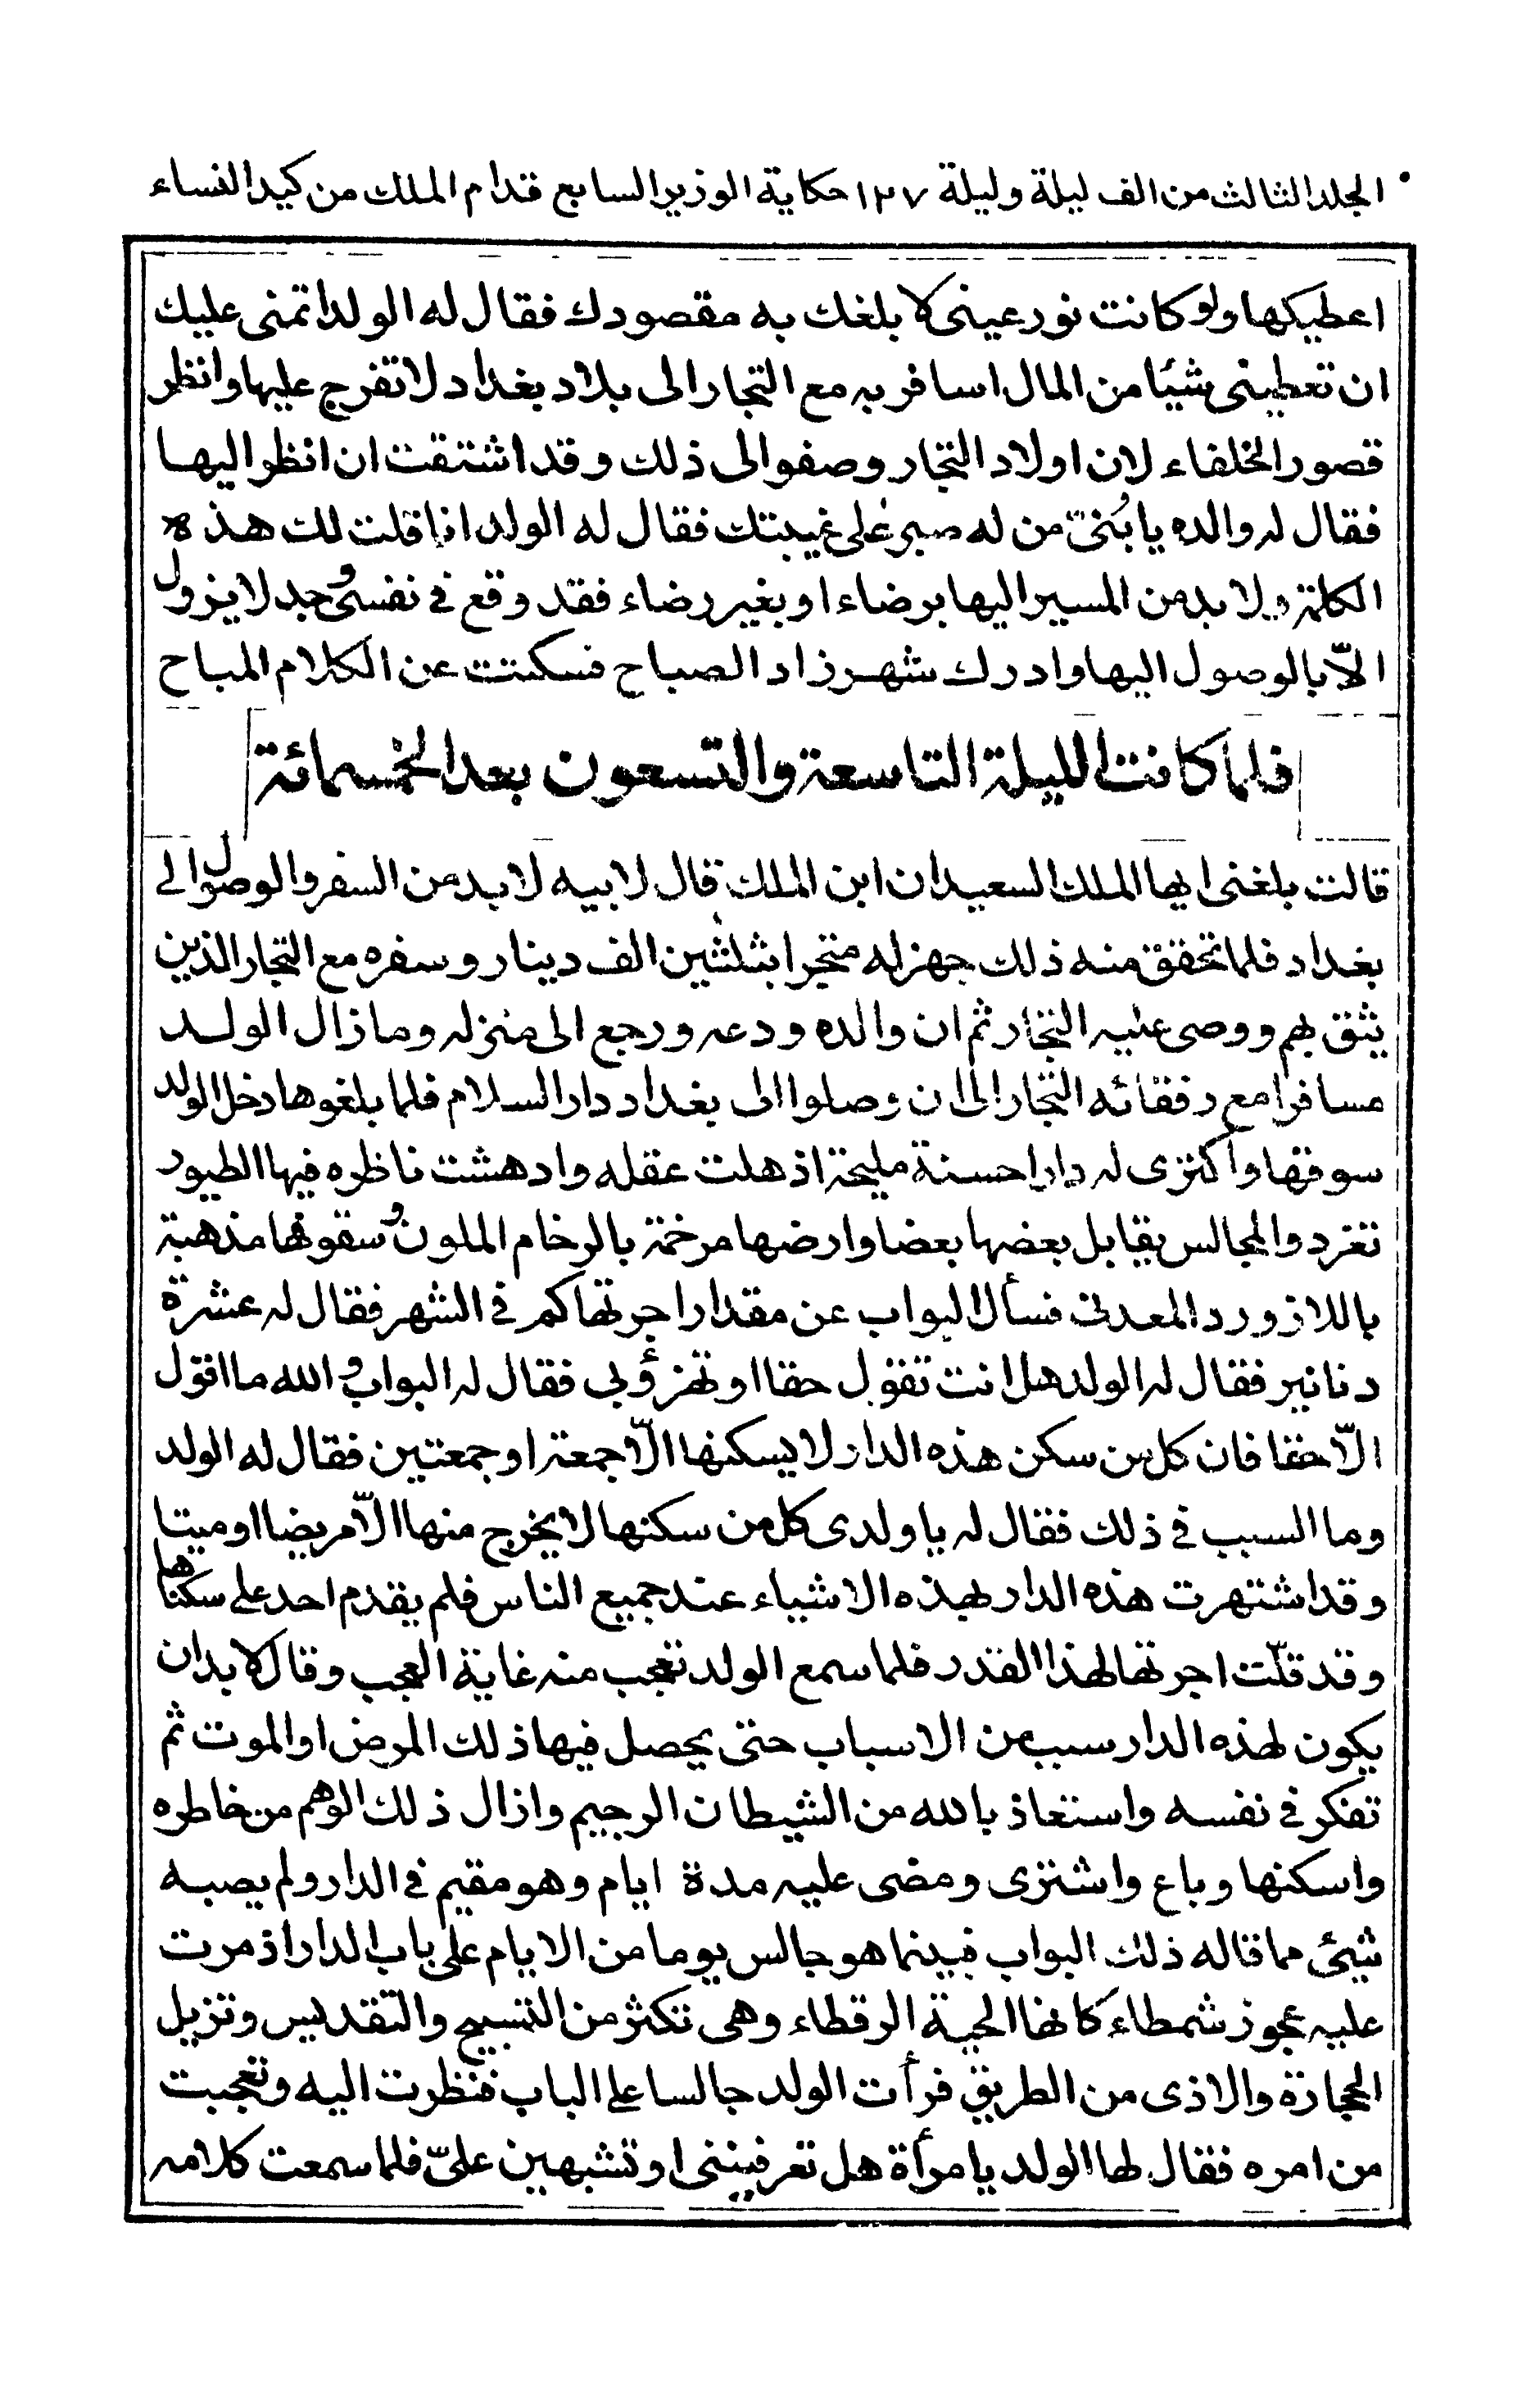 الجلد الثالث من الف ليلة وليلة ١٣٧ حكاية الوزير السابع قدام الملك من كيد النساء
اعطيكها ولو كانت نور عيني لابلغك به مقصودك فقال له الولد اتمنى عليك
ان تعطيني شيئا من المال اسافر به مع التجار الى بلاد بغداد لاتفرج عليها وانظر
قصور الخلفاء لان اولاد التجار وصفوا لى ذلك وقد اشتقت ان انظر اليها
فقال له والده يا بُنىّ من له صبر على غيبتك فقال له الولد انا قلت لك هذه
الكلمة ولا بد من المسير اليها برضاء او بغير رضاء فقد وقع في نفسى وجد لا يزول
الاّ بالوصول اليها وادرك شهرزاد الصباح فسكتت عن الكلام المباح
فلما كانت الليلة التاسعة والتسعون بعد الخمسمائة
قالت بلغنى ايها الملك السعيد ان ابن الملك قال لابيه لا بد من السفر والوصول الى
بغداد فلما تحقق منه ذلك جهز له متجرا بثلثين الف دينار وسفره مع التجار الذين
يثق بهم ووصى عليه التجار ثم ان والده ودعه ورجع الى منزله وما زال الولد
مسافرا مع رفقائه التجار الى ان وصلوا الى بغداد دار السلام فلما بلغوها دخل الولد
سوقها واكترى له دارا حسنة مليحة اذهلت عقله وادهشت ناظره فيها الطيور
تغرد والمجالس يقابل بعضها بعضا وارضها مرخمة بالرخام الملون وسقوفها مذهبة
باللازورد المعدنى فسأل البواب عن مقدار اجرتها كم في الشهر فقال له عشرة
دنانير فقال له الولد هل انت تقول حقا او تهزؤ بي فقال له البواب والله ما اقول
الاّ حقا فان كل من سكن هذه الدار لا يسكنها الاّ جمعة او جمعتين فقال له الولد
وما السبب في ذلك فقال له يا ولدى كل من سكنها لا يخرج منها الاّ مريضا او ميتا
وقد اشتهرت هذه الدار بهذه الاشياء عند جميع الناس فلم يقدم احد على سكناها
وقد قلّت اجرتها لهذا القدر فلما سمع الولد تعجب منه غاية العجب وقال لا بد ان
يكون لهذه الدار سبب من الاسباب حتى يحصل فيها ذلك المرض او الموت ثم
تفكر في نفسه واستعاذ بالله من الشيطان الرجيم وازال ذلك الوهم من خاطره
واسكنها وباع واشترى ومضى عليه مدة ايام وهو مقيم في الدار ولم يصبه
شيئ مما قاله ذلك البواب فبينما هو جالس يوما من الايام على باب الدار اذ مرت
عليه عجوز شمطاء كانها الحية الرقطاء وهى تكثر من التسبيح والتقديس وتزيل
الحجارة والاذى من الطريق فرأت الولد جالسا على الباب فنظرت اليه وتعجبت
من امره فقال لها الولد يا مرأة هل تعرفيننى او تشبهين علىّ فلما سمعت كلامه